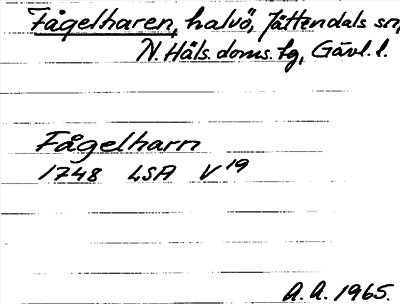 Fågelharen, halvö, Jättendals sn,
N. Häls. doms. tg, Gävl. l.
Fågelharn
1748 LSA V 19
A. A. 1965.